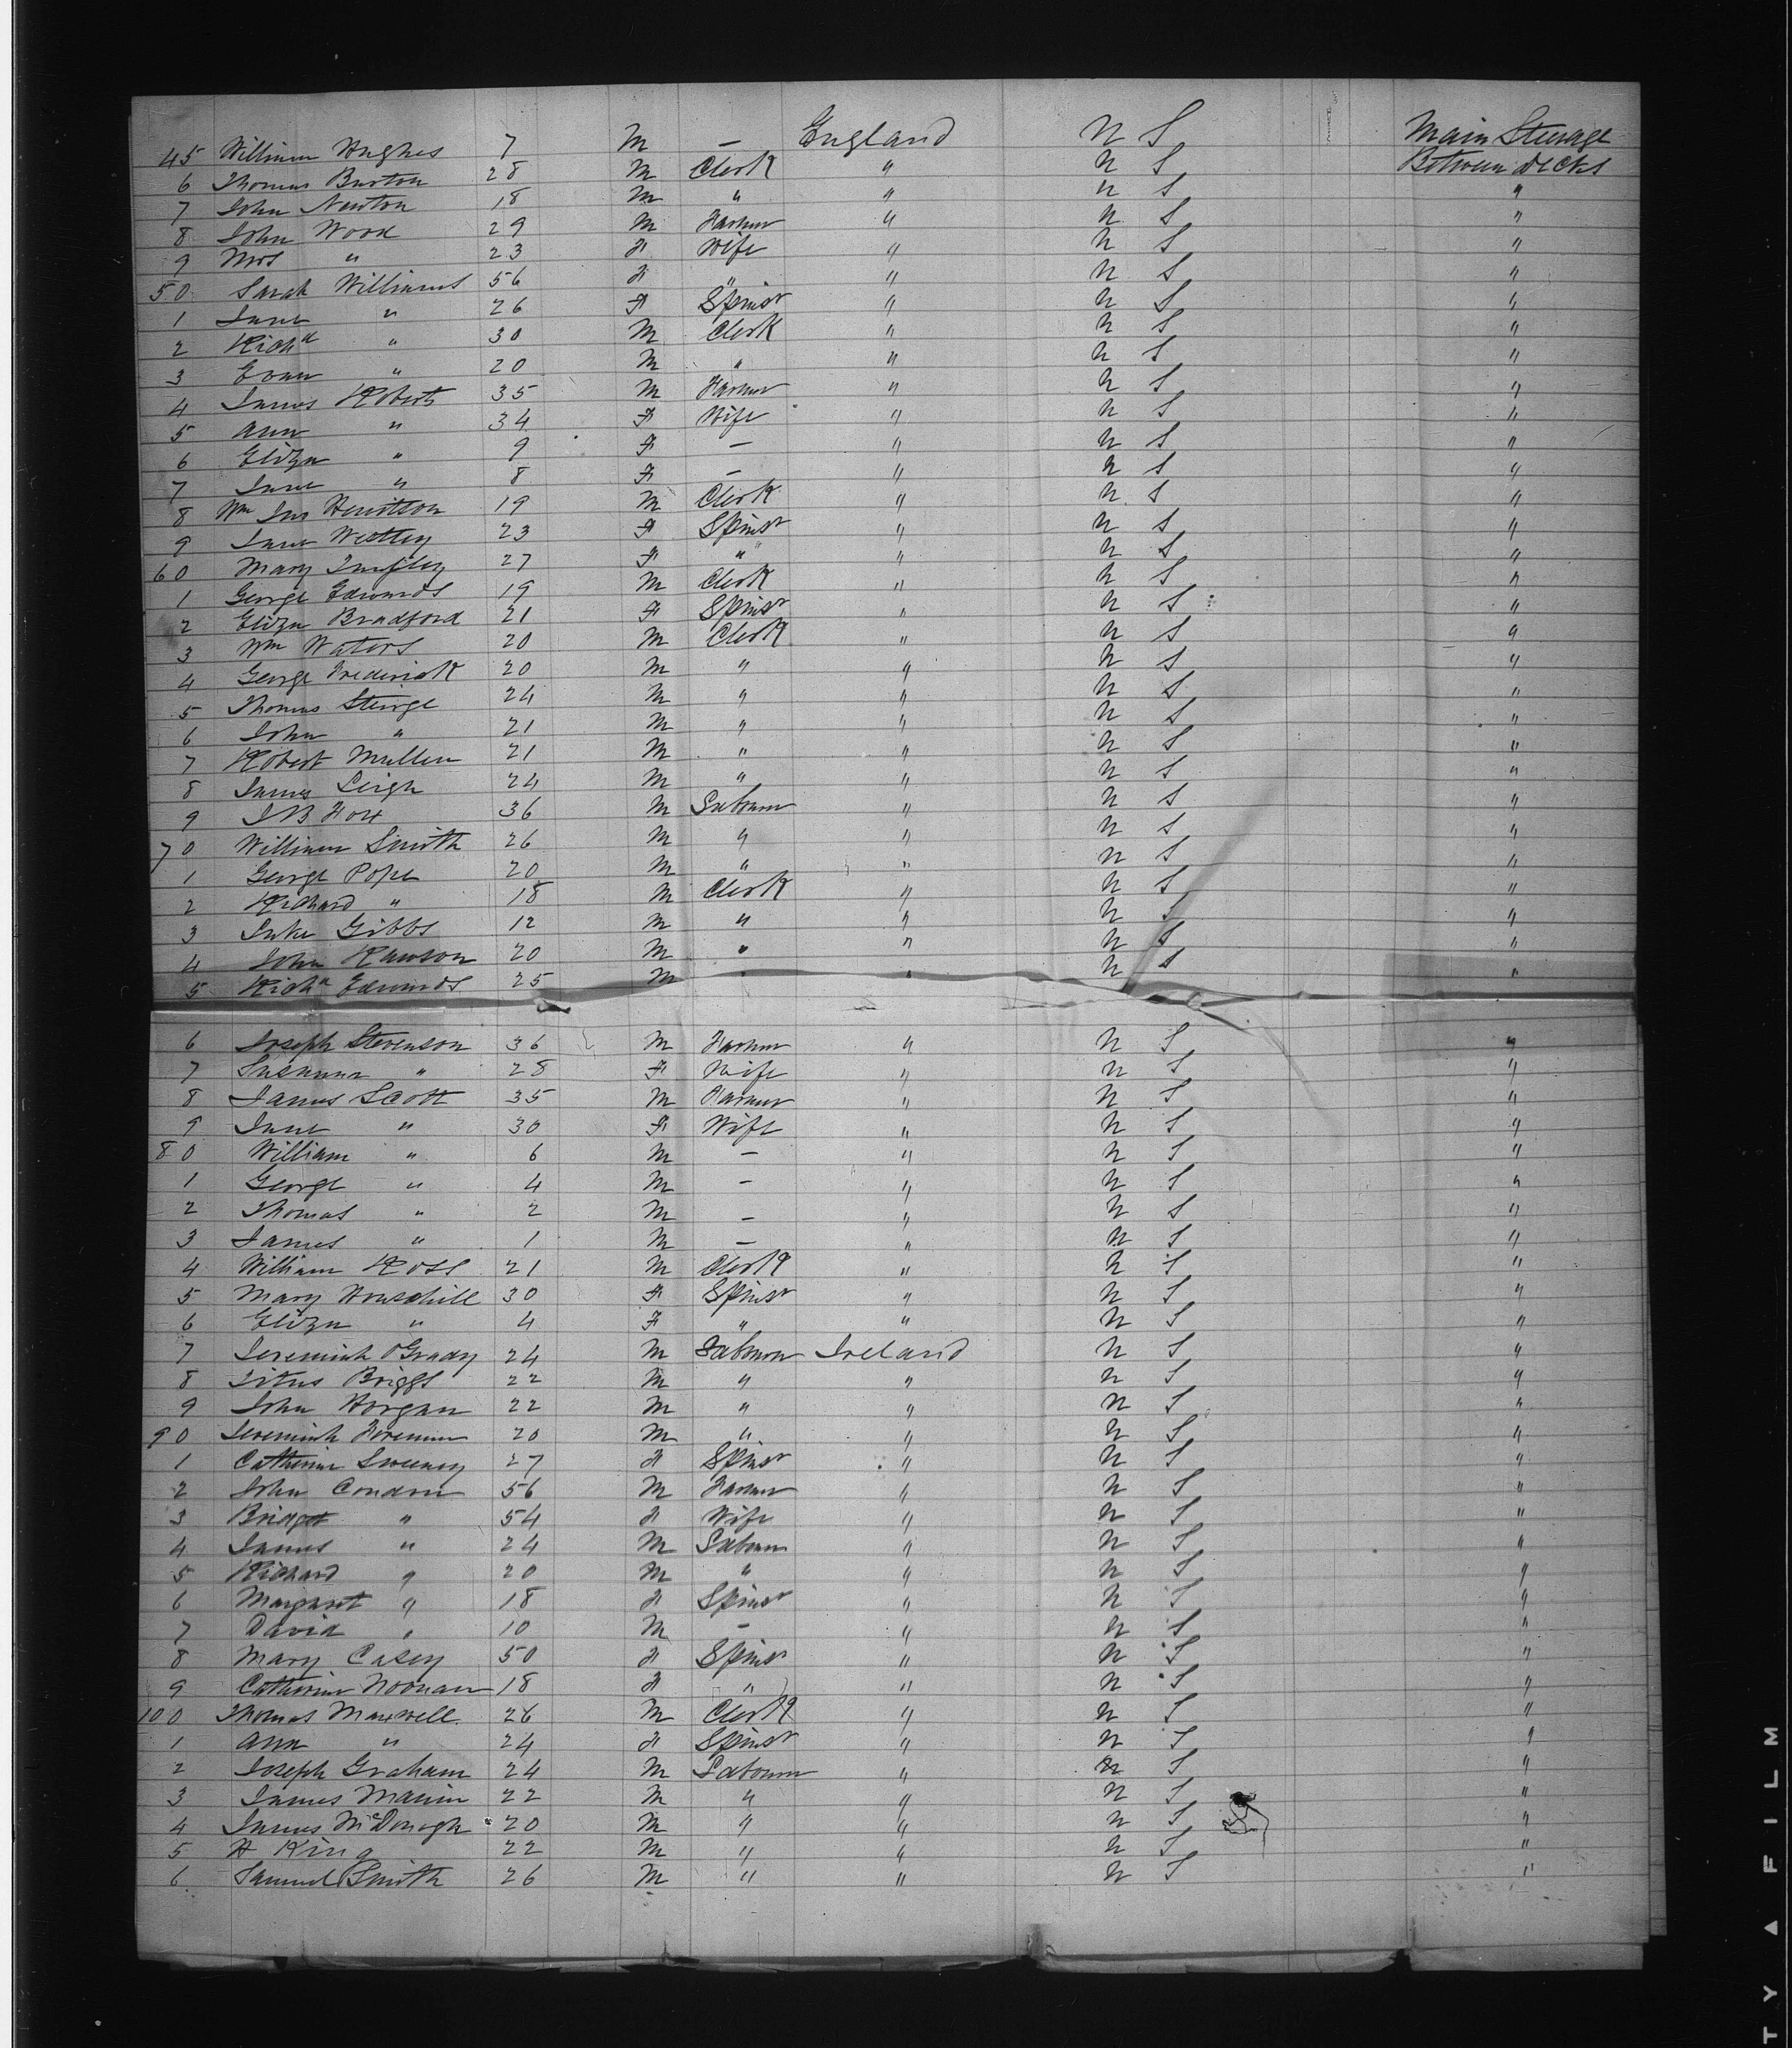 45 William Hughes 7 M — England U S Main Steerage
6 Thomas Burton 28 M Clerk " U S Between decks
7 John Newton 18 M " " U S "
8 John Wood 29 M Farmer " U S "
9 Mrs " 23 F Wife " U S "
50 Sarah Williams 56 F " " U S "
1 Jane " 26 F Spinsr " U S "
2 Richd " 30 M Clerk " U S "
3 Evan " 20 M " " U S "
4 James Roberts 35 M Farmer " U S "
5 Ann " 34 F Wife " U S "
6 Eliza " 9 F — " U S "
7 Jane " 8 F — " U S "
8 Wm Jas 19 M Clerk " U S "
9 Jane 23 F Spinsr " U S "
60 Mary 27 F " " U S "
1 George Edwards 19 M Clerk " U S "
2 Eliza Bradford 21 F Spinsr " U S "
3 Wm Waters 20 M Clerk " U S "
4 George Frederick 20 M " " U S "
5 Thomas 24 M " " U S "
6 John " 21 M " " U S "
7 Robert Mullen 21 M " " U S "
8 James Leigh 24 M " " U S "
9 J B Fox 36 M Labourer " U S "
70 William Smith 26 M " " U S "
1 George Pope 20 M " " U S "
2 Richard " 18 M Clerk " U S "
3 Luke Gibbs 12 M " " U S "
4 John Rawson 20 M " " U S "
5 Richd Edwards 25 M " " U S "
6 Joseph Stevenson 36 M Farmer " U S "
7 Susanna " 28 F Wife " U S "
8 James Scott 35 M Farmer " U S "
9 Jane " 30 F Wife " U S "
80 William " 6 M — " U S "
1 George " 4 M — " U S "
2 Thomas " 2 M — " U S "
3 James " 1 M — " U S "
4 William Ross 21 M Clerk " U S "
5 Mary 30 F Spinsr " U S "
6 Eliza " 4 F " " U S "
7 Jeremiah O'Grady 24 M Labourer Ireland U S "
8 Titus Briggs 22 M " " U S "
9 John Horgan 22 M " " U S "
90 Jeremiah Foreman 20 M " " U S "
1 Catherine Sweeney 27 F Spinsr " U S "
2 John Condon 56 M Farmer " U S "
3 Bridget " 54 F Wife " U S "
4 James " 24 M Labourer " U S "
5 Richard " 20 M " " U S "
6 Margaret " 18 F Spinsr " U S "
7 David " 10 M — " U S "
8 Mary Casey 50 F Spinsr " U S "
9 Catherine Noonan 18 F " " U S "
100 Thomas Maxwell 26 M Clerk " U S "
1 Ann " 24 F Spinsr " U S "
2 Joseph Graham 24 M Labourer " U S "
3 James 22 M " " U S "
4 James McDonogh 20 M " " U S "
5 H King 22 M " " U S "
6 Samuel Smith 26 M " " U S "
TY ▲ FILM